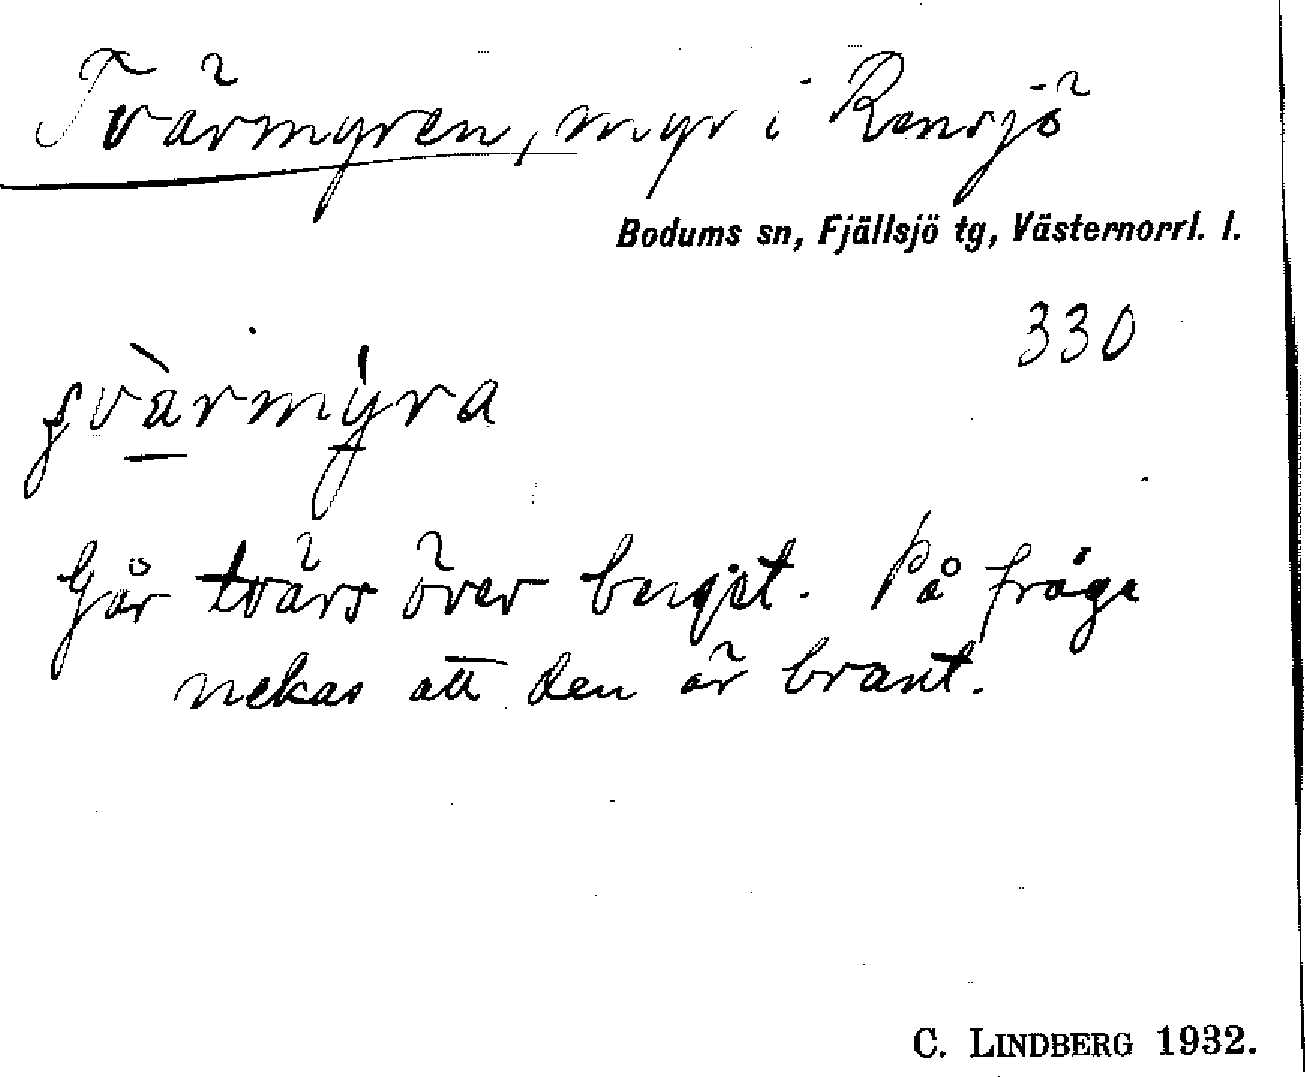 Tvärmyren, myr i Rensjö
Bodums sn, Fjällsjö tg, Västernorrl. l.
330
tvàrmýra
Går tvärs över berget. På fråga
nekas att den är brant.
C. LINDBERG 1932.